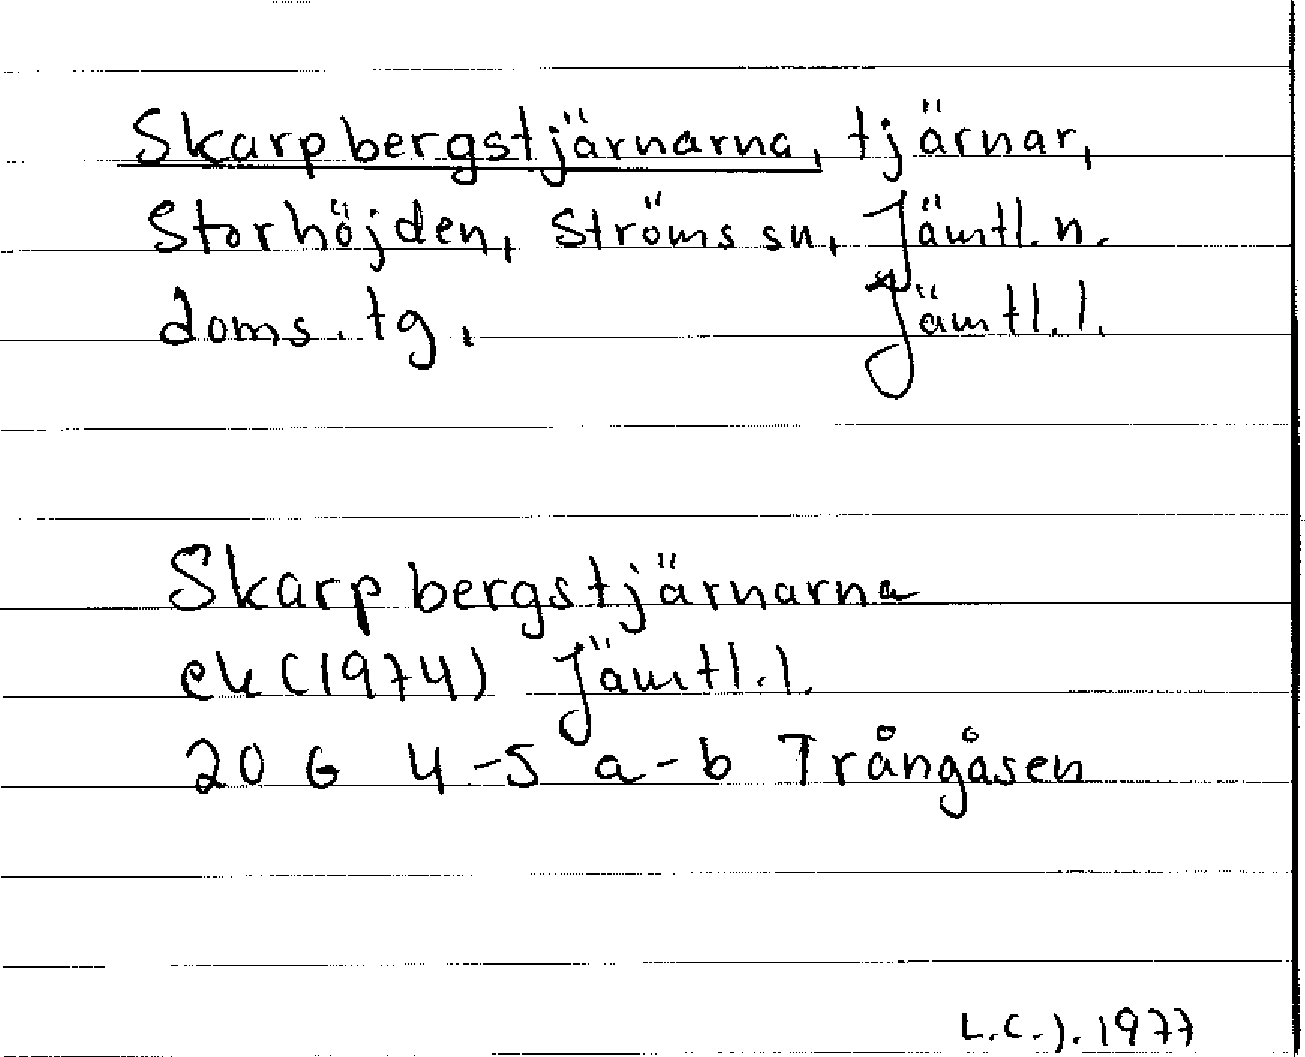 Skarpbergstjärnarna, tjärnar,
Storhöjden, Ströms sn, Jämtl. n.
doms. tg, Jämtl. l.
Skarpbergstjärnarna
ek (1974) Jämtl. l.
20 G 4-5 a-b Trångåsen
L.C.J. 1977